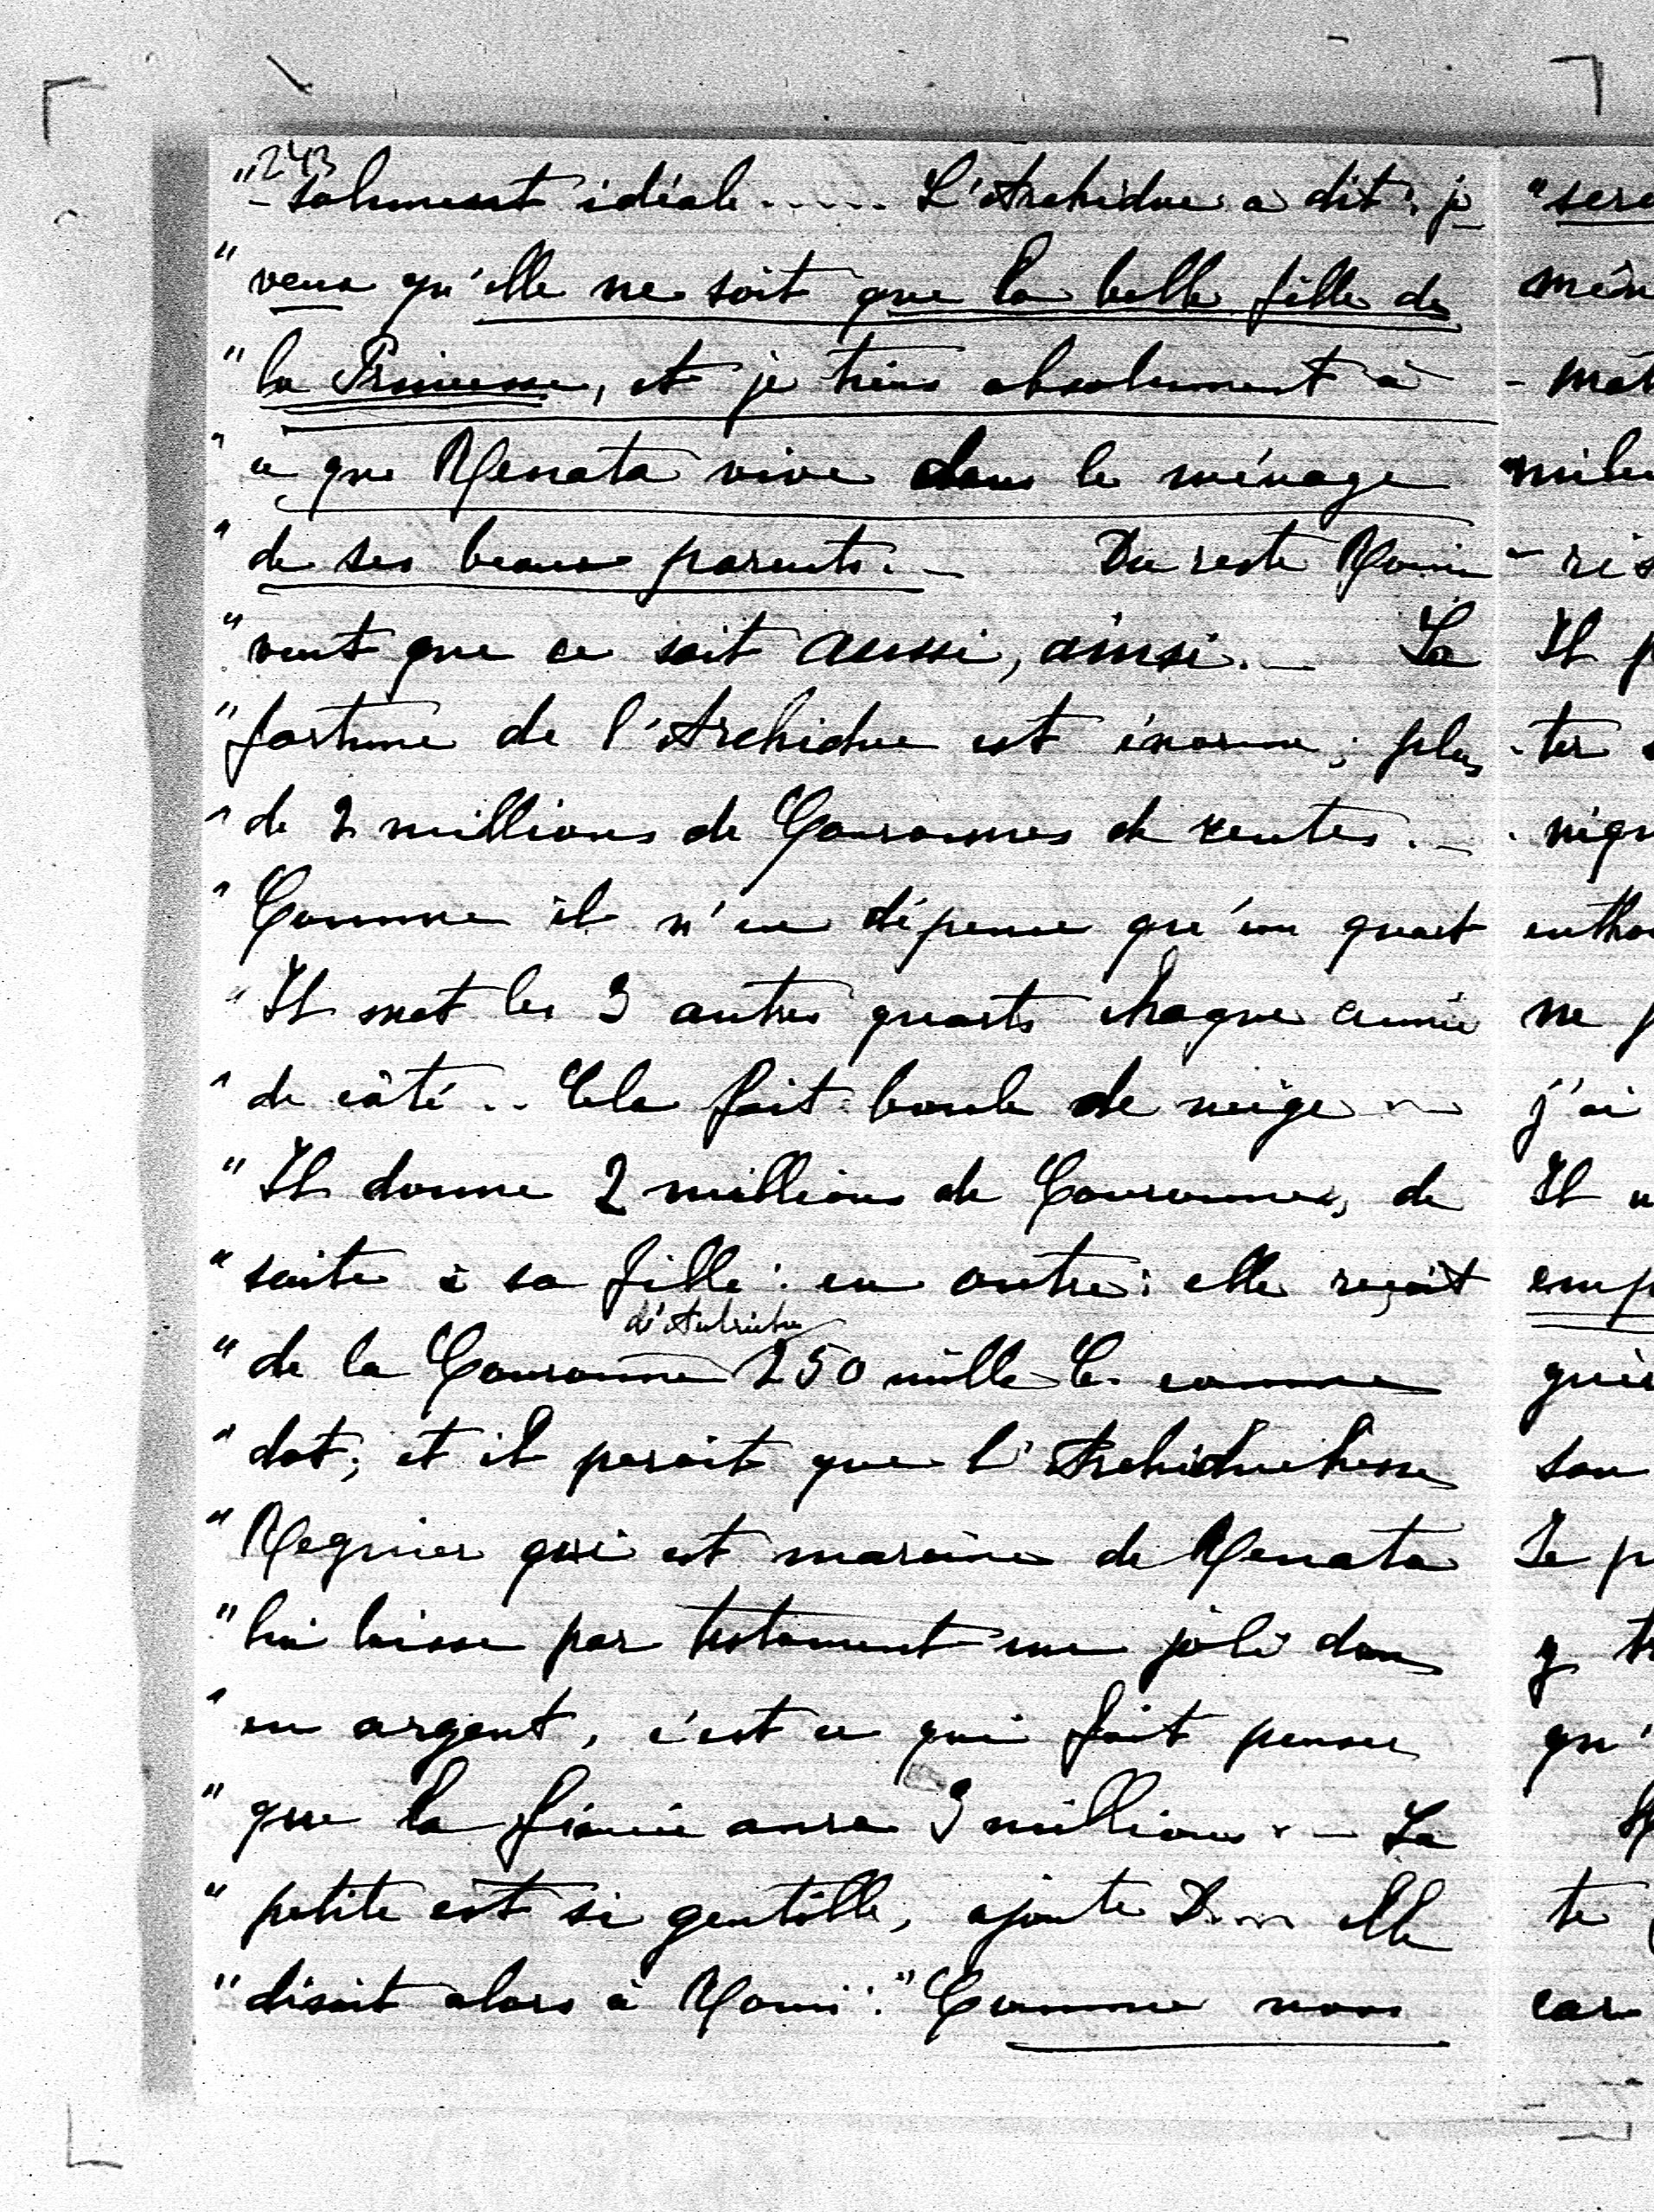 243
"-solument idéale..... L'Archiduc a dit: je
"veux qu'elle ne soit que la belle fille de
"la Princesse, et je tiens absolument à
"ce que Renata vive dans le ménage
"de ses beaux parents._ Du reste
"veut que ce soit aussi, ainsi._ La
"fortune de l'Archiduc est énorme; plus
"de 2 millions de Couronnes de rentes._
"Comme il n'en dépense qu'un quart
"Il met les 3 autres quarts chaque année
"de côté.. Cela fait boule de neige
"Il donne 2 millions de Couronnes, de
"suite à sa fille: en outre: elle reçoit
d'Autriche
"de la Couronne 250 mille C. comme
"dot; et il parait que l'Archiduchesse
"Regnier qui est marraine de Renata
"lui laisse par testament un joli don
"en argent, c'est ce qui fait penser
"que la fiancée aura 3 millions._ La
"petite est si gentille, ajoute D... elle
"disait alors à : "Comme nous
"sera
mê
-mat
ris
Il p
-ter
-niqu
entho
ne p
j'ai
Il
emp
son
Je p
y
qu'
te
car